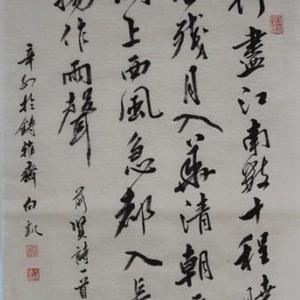 行盡江南數十程曉
風殘月入華清朝元
閣上西風急都入長
楊作雨聲
前賢詩一首
辛卯於鑄雅齋